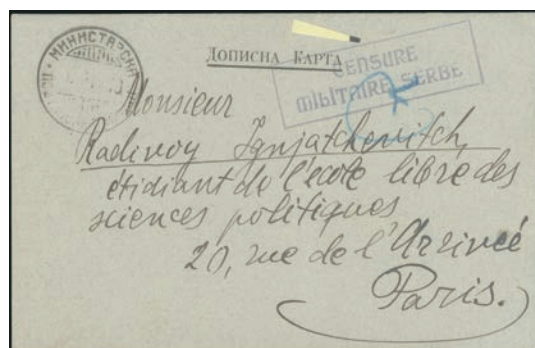 МИНИСТАРСКИ
ДОПИСНА КАРТА
CENSURE
MILITAIRE SERBE
Monsieur
Radivoy Ignjatchevitch,
étidiant de l'école libre des
sciences politiques
20, rue de l'Arrivée
Paris.